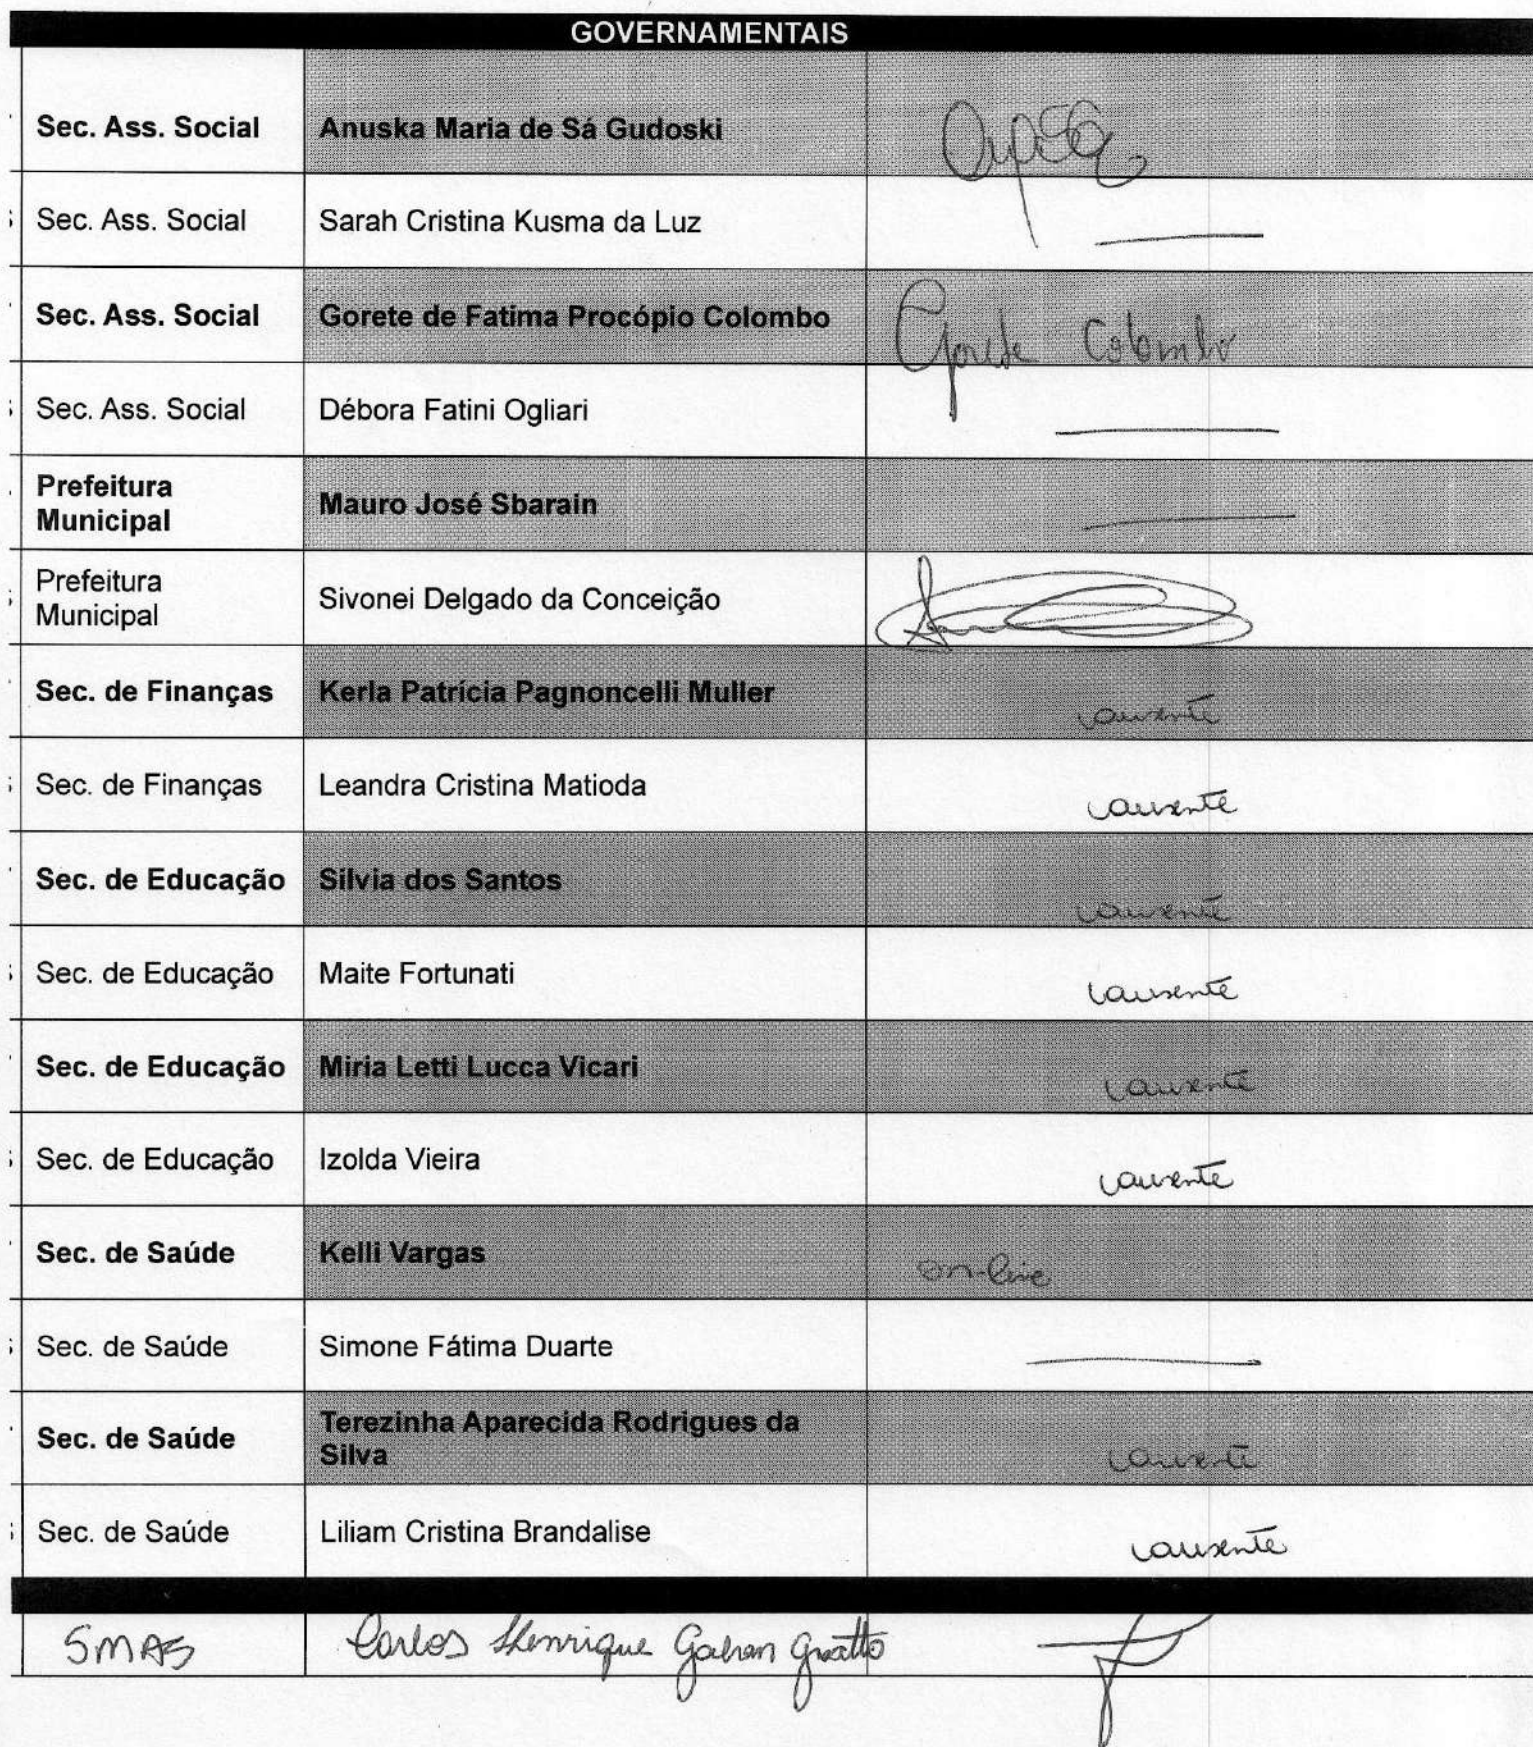 GOVERNAMENTAIS
Sec. Ass. Social Anuska Maria de Sá Gudoski
Sec. Ass. Social Sarah Cristina Kusma da Luz
Sec. Ass. Social Gorete de Fatima Procópio Colombo Gorete Colombo
Sec. Ass. Social Débora Fatini Ogliari
Prefeitura
Municipal Mauro José Sbarain
Prefeitura
Municipal Sivonei Delgado da Conceição
Sec. de Finanças Kerla Patrícia Pagnoncelli Muller ausente
Sec. de Finanças Leandra Cristina Matioda ausente
Sec. de Educação Silvia dos Santos ausente
Sec. de Educação Maite Fortunati ausente
Sec. de Educação Miria Letti Lucca Vicari ausente
Sec. de Educação Izolda Vieira ausente
Sec. de Saúde Kelli Vargas on-line
Sec. de Saúde Simone Fátima Duarte
Sec. de Saúde Terezinha Aparecida Rodrigues da
Silva ausente
Sec. de Saúde Liliam Cristina Brandalise ausente
SMAS Carlos Henrique